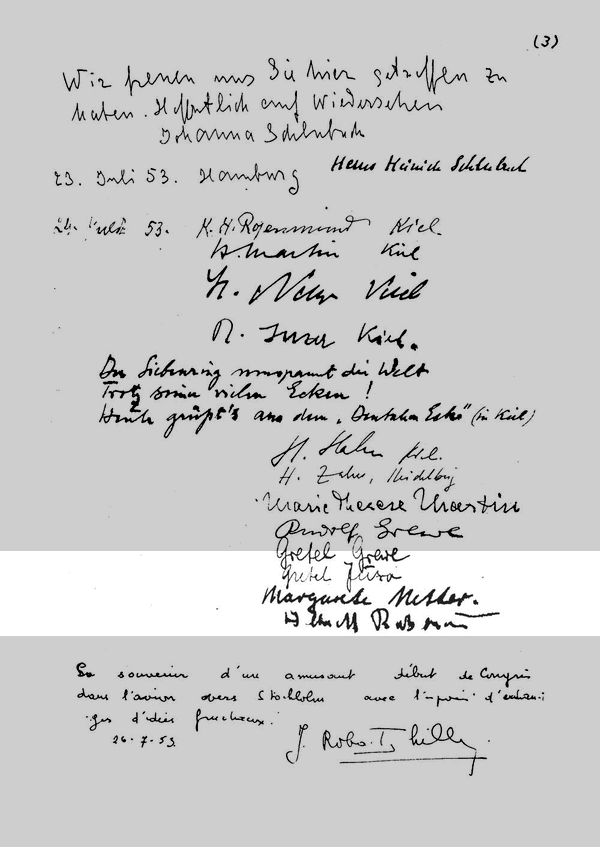 (3)
Wir freuen uns Sie hier getroffen zu
haben. Hoffentlich auf Wiedersehen
Johanna Schlubach
23. Juli 53. Hamburg Hans Heinrich Schlubach
24. Juli 53. K. H. Rosenmund Kiel.
H. Martin Kiel
Kiel
Kiel.
Der Siebenring umspannt die Welt
Trotz seiner vielen Ecken!
Heute grüßt's aus dem „Deutschen Eck" (in Kiel)
H. Hahn Kiel.
H. Zahn, Heidelberg
Marie Therese Martin
Rudolf Grewe
Gretel Grewe
Gretel
Margarete
En souvenir d'un amusant début de Congrès
dans l'avion vers Stockholm avec l'espoir d'échan-
ges d'idées
26.7.53
J.